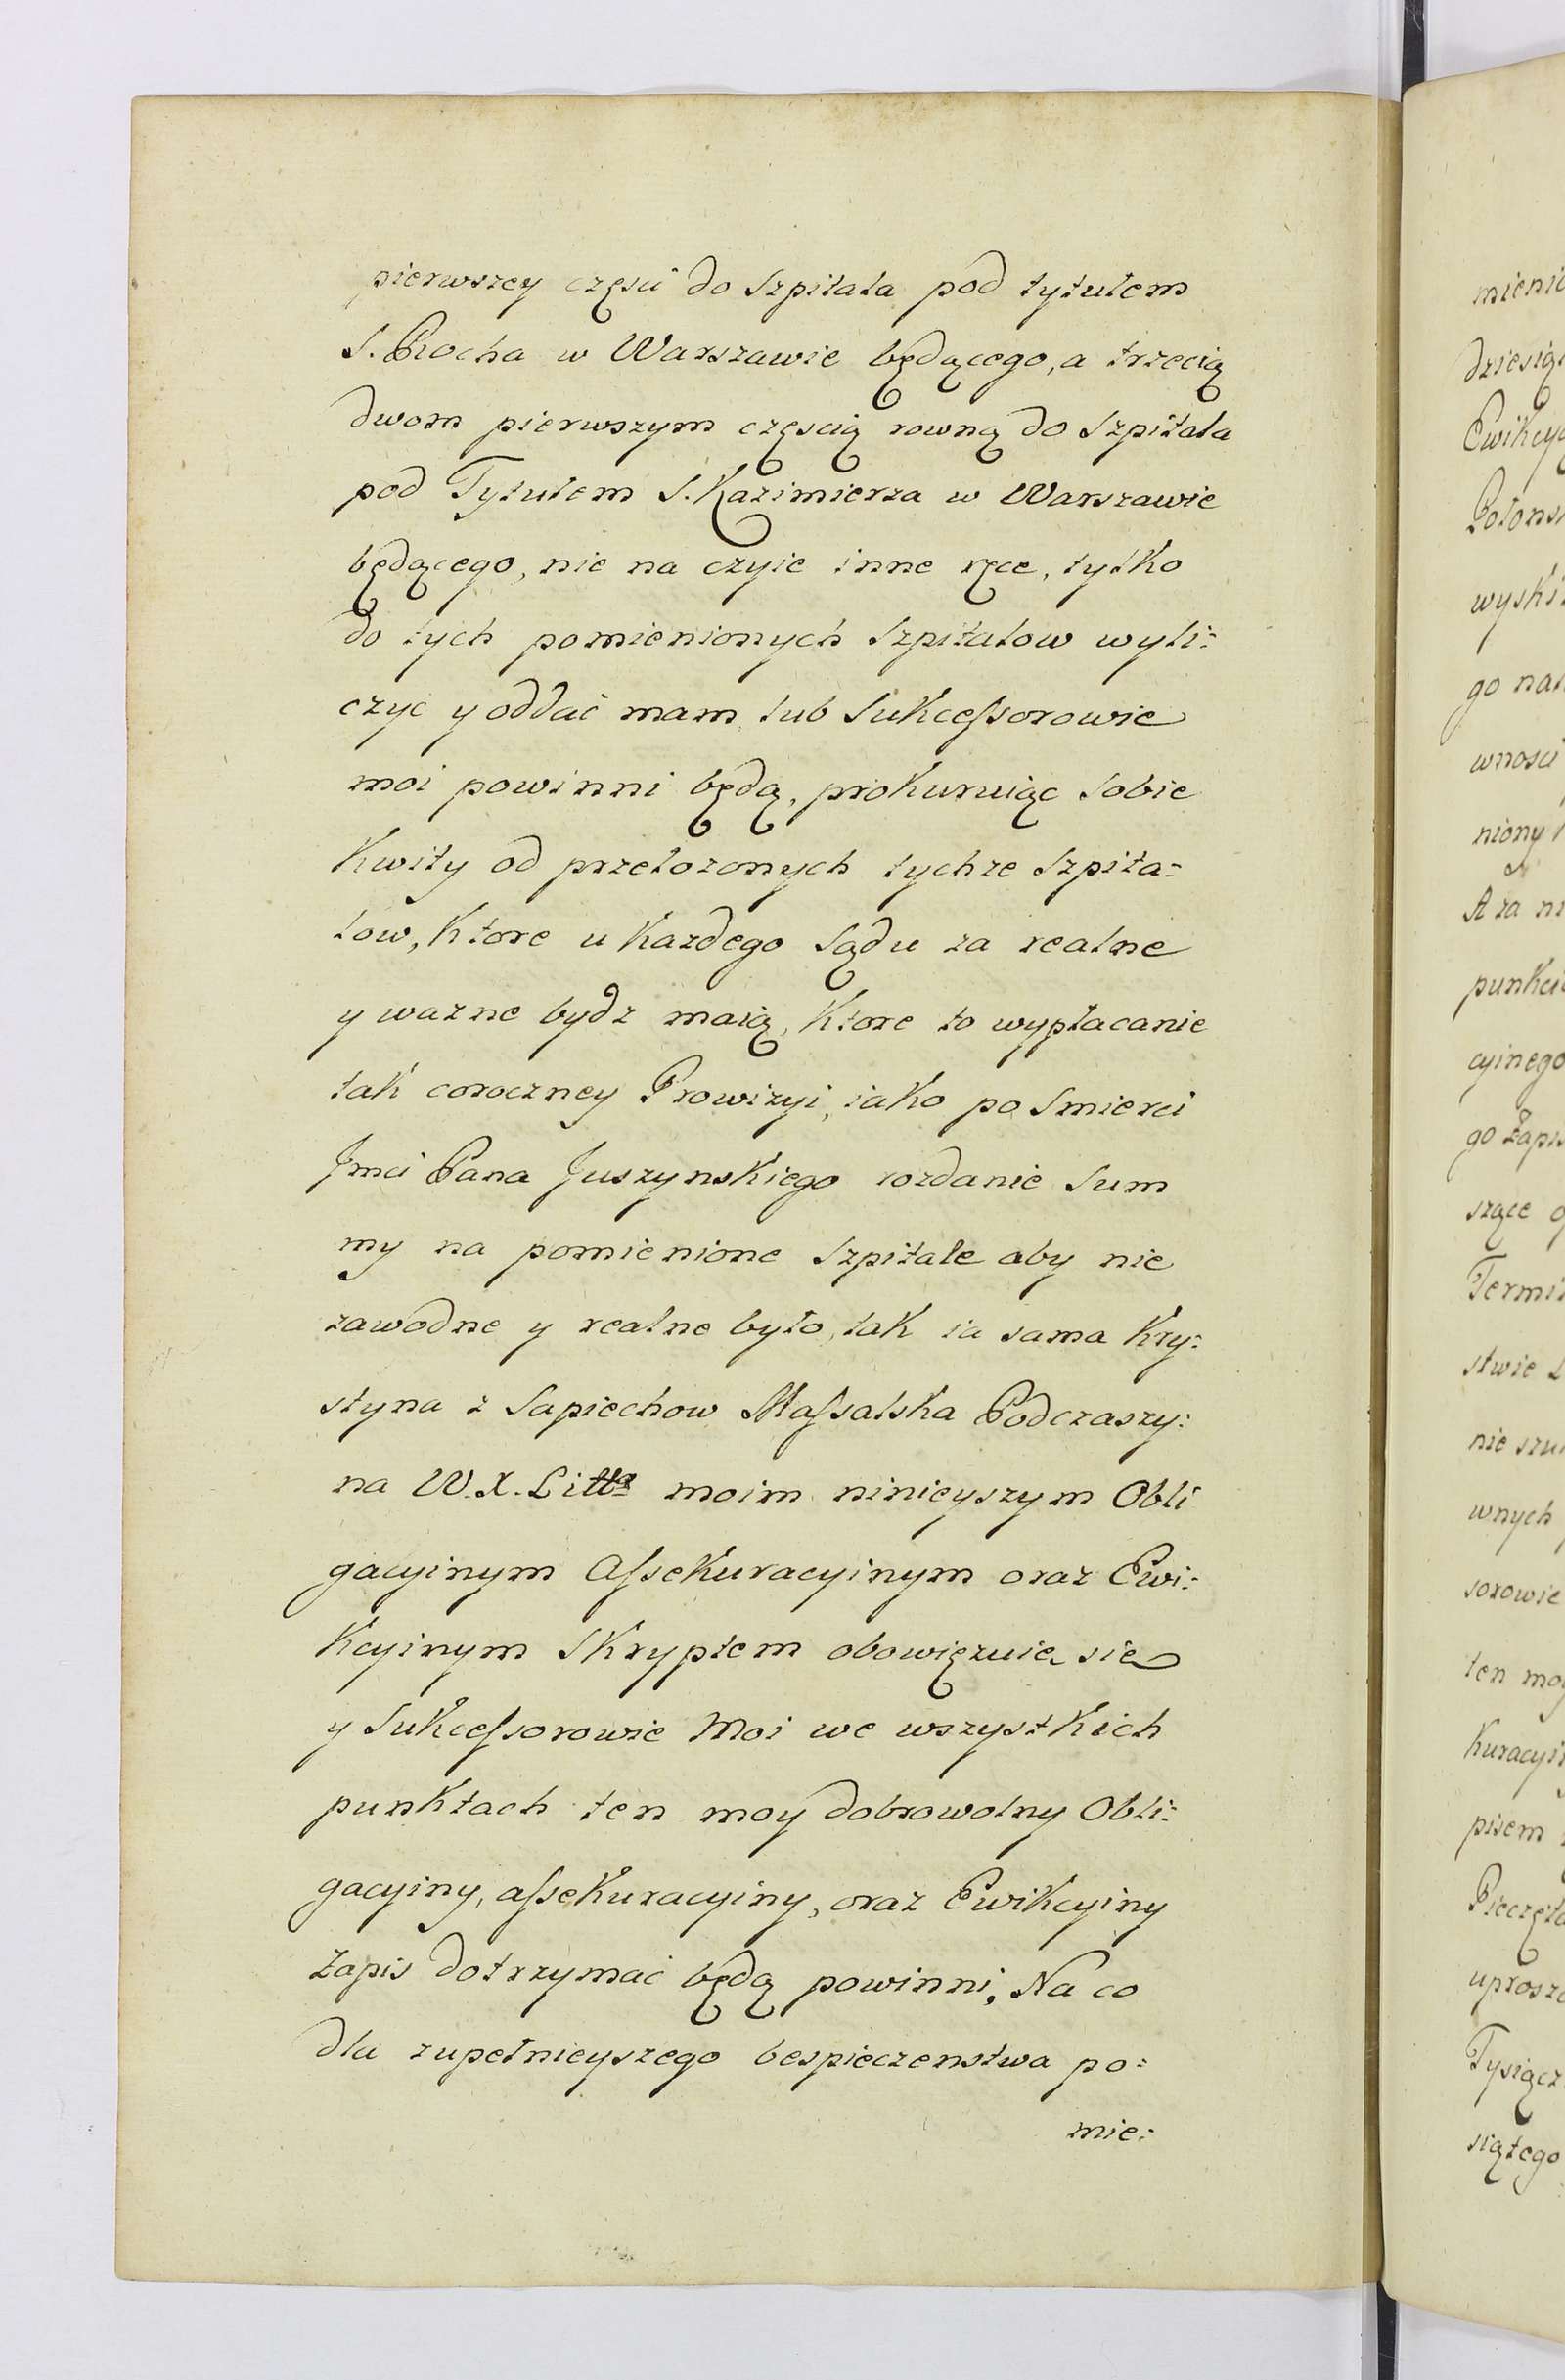 pierwszey częsci do Szpitala pod tytułem
S. Rocha w Warszawie będącego, a trzecią
dwom pierwszym częscią rowną do Szpitala
pod Tytułem S. Kazimierza w Warszawie
będącego, nie na czyie inne ręce, tylko
do tych pomienionych Szpitalow wyli:
czyc y oddać mam lub Sukcessorowie
moi powinni będą, prokuruiąc sobie
Kwity od przełozonych tychze Szpita:
low, Ktore u Kazdego Sądu za realne
y wazne bydz maią, Ktore to wypłacanie
tak coroczney Prowizyi, iako po Smierci
Jmci Pana Juszynskiego rozdanie Sum
my na pomienione Szpitale aby nie
zawodne y realne było, tak ia sama Kry:
styna z Sapiechow Massalska Podczaszy:
na W. X. Litta moim ninieyszym Obli
gacyinym Assekuracyinym oraz Ewi:
Kcyinym Skryptem obowięzuie sie
y Sukcessorowie Moi we wszystkich
punktach ten moy dobrowolny Obli:
gacyiny, assekuracyiny, oraz Ewikcyiny
Zapis dotrzymać będą powinni, Na co
dla zupełnieyszego bespieczenstwa po:
mie:
mienio
dziesią
Ewikcyą
Polons
wyski
go na
wnosci
niony
A za ni
punkci
cyinego
go Zapis
szące
Termi
stwie
nie szu
wnych
sorowie
ten mo
Kuracyi
pisem
Pieczęta
uprosz
Tysiącz
siątego